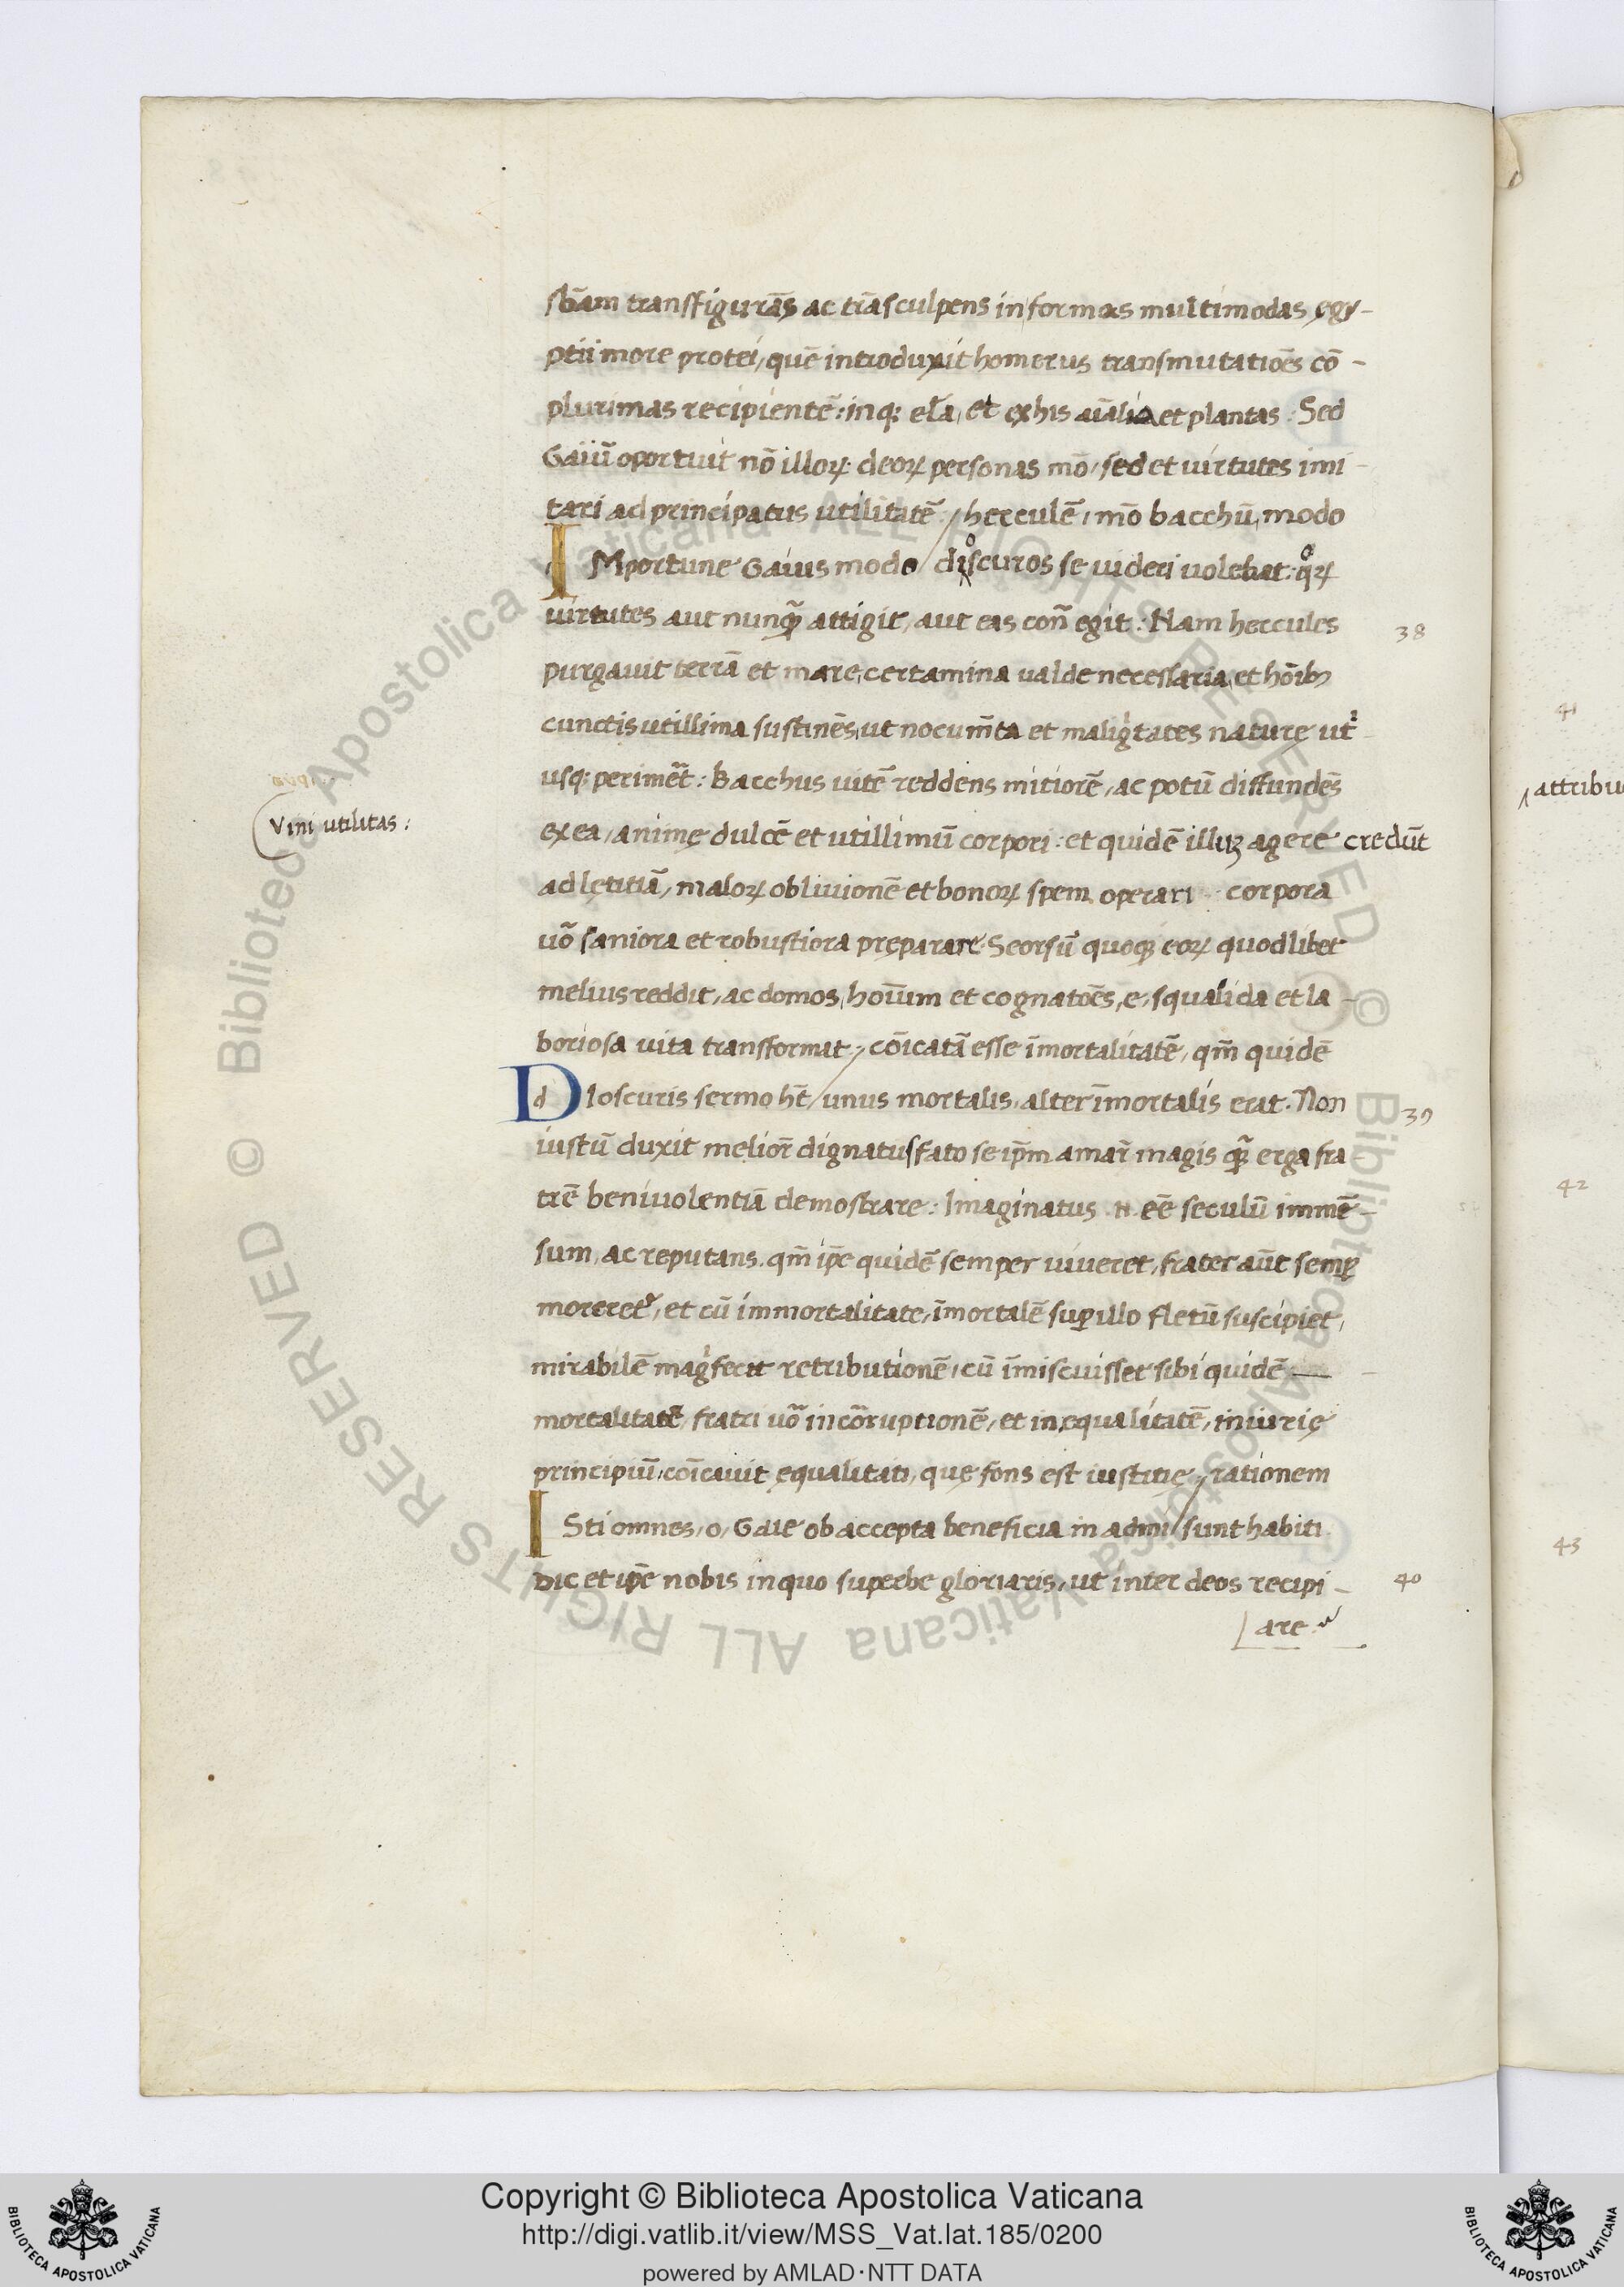 sbāam transfigurās ac trāsculpens in formas multimodas egy-
ptii more protei, quē introduxit homerus transmutatiōes cō-
plurimas recipientē: inq; elta, et ex his aīalia et plantas. Sed
Gaiū oportuit nō illoꝝ deoꝝ personas mō, sed et uirtutes imi-
tari ad principatus utilitatē / herculē, mō bacchū, modo
IMportune Gaius modo / dioscuros se uideri uolebat: qoꝝ
uirtutes aut nunꝙ̄ attigit, aut eas con̄ egit: Nam hercules
purgauit terrā et mare, certamina ualde necessaria, et hōib;
cunctis utillima sustinēs, ut nocum̄ta et maligītates nature utr-
usq; perimēt: Bacchus uitē reddens mitiorē, ac potū diffundēs
ex ea, animę dulcē et utillimū corpori: et quidē illuꝫ agere credūt
ad lętitiā, maloꝝ obliuionē et bonoꝝ spem operari corpora
uō saniora et robustiora pręparare. Seorsū quoqꝫ eoꝝ quodlibet
melius reddit, ac domos, hoīum et cognatōes, e, squalida et la-
boriosa uita transformat / cōicatā esse īmortalitatē, qm̄ quidē
DIoscuris sermo ht̄ / unus mortalis, alter īmortalis erat. Non
iustū duxit melior̄ dignatus fato se ip̄m amar̄ magis ꝙ̄ erga fra
trē beniuolentiā demostrare: Imaginatus .n. eē̄ seculū immē-
sum, ac reputans. qm̄ ip̄e quidē semper uiueret, frater aūt semꝑ
morereť, et cū immortalitate, īmortalē suꝑ illo fletū suscipiet,
mirabilē magīfecit retributionē, cū īmiscuisset sibi quidē —
mortalitatē, fratri uō incōrruptionē, et inęqualitatē, iniurię
principiū, cōicauit ęqualitati, quę fons est iustitię / rationem
ISti omnes, o, Gaie ob accepta beneficia in admi / sunt habiti
Dic et ip̄e nobis in quo superbe gloriaris, ut inter deos recipi-
are.
38
39
40
Vini utilitas:
41
attribu
42
43
Copyright © Biblioteca Apostolica Vaticana
http://digi.vatlib.it/view/MSS_Vat.lat.185/0200
powered by AMLAD·NTT DATA
BIBLIOTECA APOSTOLICA VATICANA
BIBLIOTECA APOSTOLICA VATICANA
© Biblioteca Apostolica Vaticana ALL RIGHTS RESERVED © Biblioteca Apostolica Vaticana ALL RIGHTS RESERVED